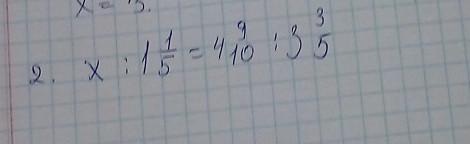 x = 3.
2. x : 1 1/5 = 4 9/10 : 3 3/5